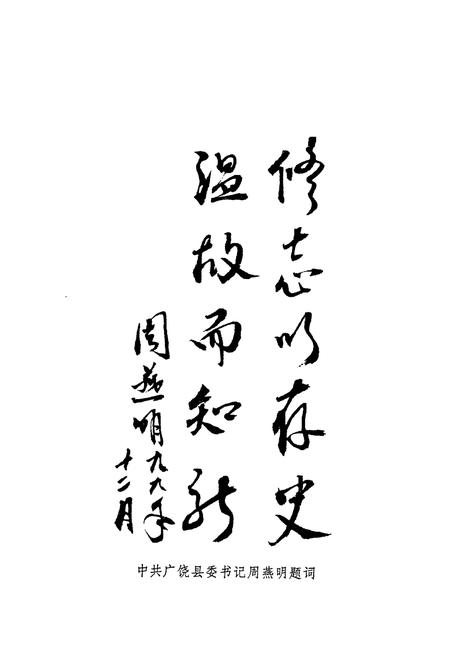 修志以存史
温故而知新
周燕明九九年
十二月
中共广饶县委书记周燕明题词